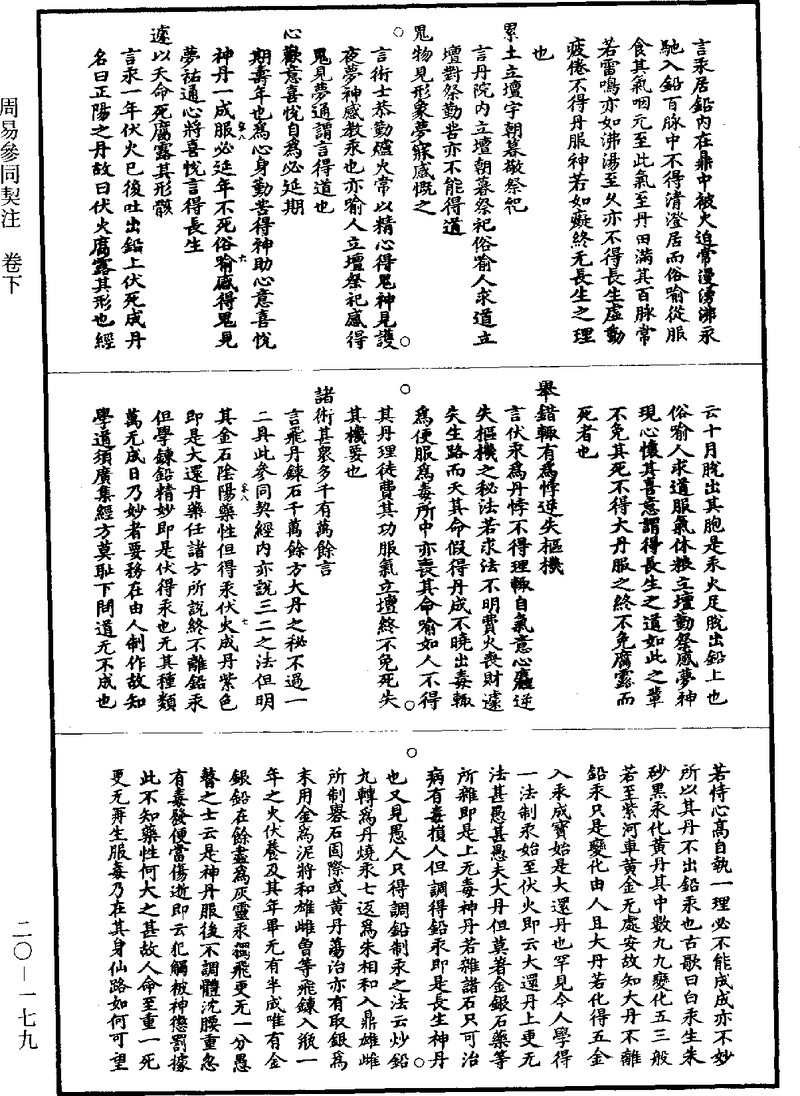 周易參同契注　卷下
二〇—一七九
言汞居鉛內在鼎中被火迫常漫湧沸汞
馳入鉛百脉中不得清澄居而俗喻從服
食其氣咽元至此氣至丹田滿其百脉常
若雷鳴亦如沸湯至久亦不得長生虛動
疲倦不得丹服神若如癡終无長生之理
也
累土立壇宇朝暮敬祭祀
言丹院內立壇朝暮祭祀俗喻人求道立
壇對祭勤苦亦不能得道
鬼物見形象夢寐感慨之
言術士恭勤爐火常以精心得鬼神見護
夜夢神感教汞也亦喻人立壇祭祀感得
鬼見夢通謂言得道也
心歡意喜悅自為必延期
期壽年也為心身勤苦得神助心意喜悅
神丹一成服必延年不死俗喻感得鬼見
夢祐通心將喜悅言得長生
遽以夭命死腐露其形骸
言汞一年伏火已後吐出鉛上伏死成丹
名曰正陽之丹故曰伏火腐露其形也經
云十月脫出其胞是汞火足脫出鉛上也
俗喻人求道服氣休粮立壇勤祭感夢神
現心懷其喜意謂得長生之道如此之輩
不免其死不得大丹服之終不免腐露而
死者也
舉錯輒有為悖逆失樞機
言伏汞為丹悖不得理輒自氣意心麤逆
失樞機之秘法若求法不明費火喪財遽
失生路而夭其命假得丹成不曉出毒輒
為便服為毒所中亦喪其命喻如人不得
其丹理徒費其功服氣立壇終不免死失
其機要也
諸術甚衆多千有萬餘言
言飛丹鍊石千萬餘方大丹之秘不過一
二具此參同契經內亦說三二之法但明
其金石陰陽藥性但得汞伏火成丹紫色
即是大還丹藥任諸方所說終不離鉛汞
但學鍊鉛精妙即是伏得汞也无其種類
萬无成日乃妙者要務在由人制作故知
學道須廣集經方莫恥下問道无不成也
若恃心高自執一理必不能成成亦不妙
所以其丹不出鉛汞也古歌曰白汞生朱
砂黑汞化黃丹其中數九九變化五三般
若至紫河車黃金无處安故知大丹不離
鉛汞只是變化由人且大丹若化得五金
入汞成寶始是大還丹也罕見今人學得
一法制汞始至伏火即云大還丹上更无
法甚愚甚愚夫大丹但莫著金銀石藥等
所雜即是上无毒神丹若雜諸石只可治
病有毒損人但調得鉛汞即是長生神丹
也又見愚人只得調鉛制汞之法云炒鉛
九轉為丹燒汞七返為朱相和入鼎雄雌
所制礜石固際或黃丹蕩治亦有取銀為
末用金為泥將和雄雌曾等飛鍊入瓶一
年之火伏養及其年畢无有半成唯有金
銀鉛在餘盡為灰靈汞獨飛更无一分愚
瞽之士云是神丹服後不調體沈腰重忽
有毒發便當傷逝即云犯觸被神憊罰據
此不知藥性何大之甚故人命至重一死
更无再生服毒乃在其身仙路如何可望